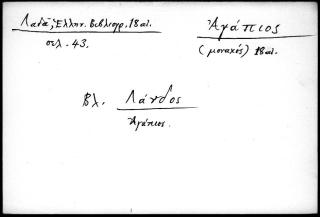 Λαδᾶ, Ἑλλην. Βιβλιογρ. 18 αἰ.
σελ. 43.
Ἀγάπιος
(μοναχός) 18 αἰ.
Βλ. Λάνδος
Ἀγάπιος.